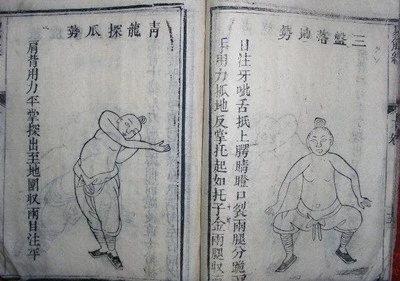 三盤落地勢
目注牙呲舌抵上腭睛瞪口裂兩腿分跪
手用力抓地反掌托起如托子金兩腿収
青龍探爪勢
肩背用力平掌探出至地圍収兩目注平